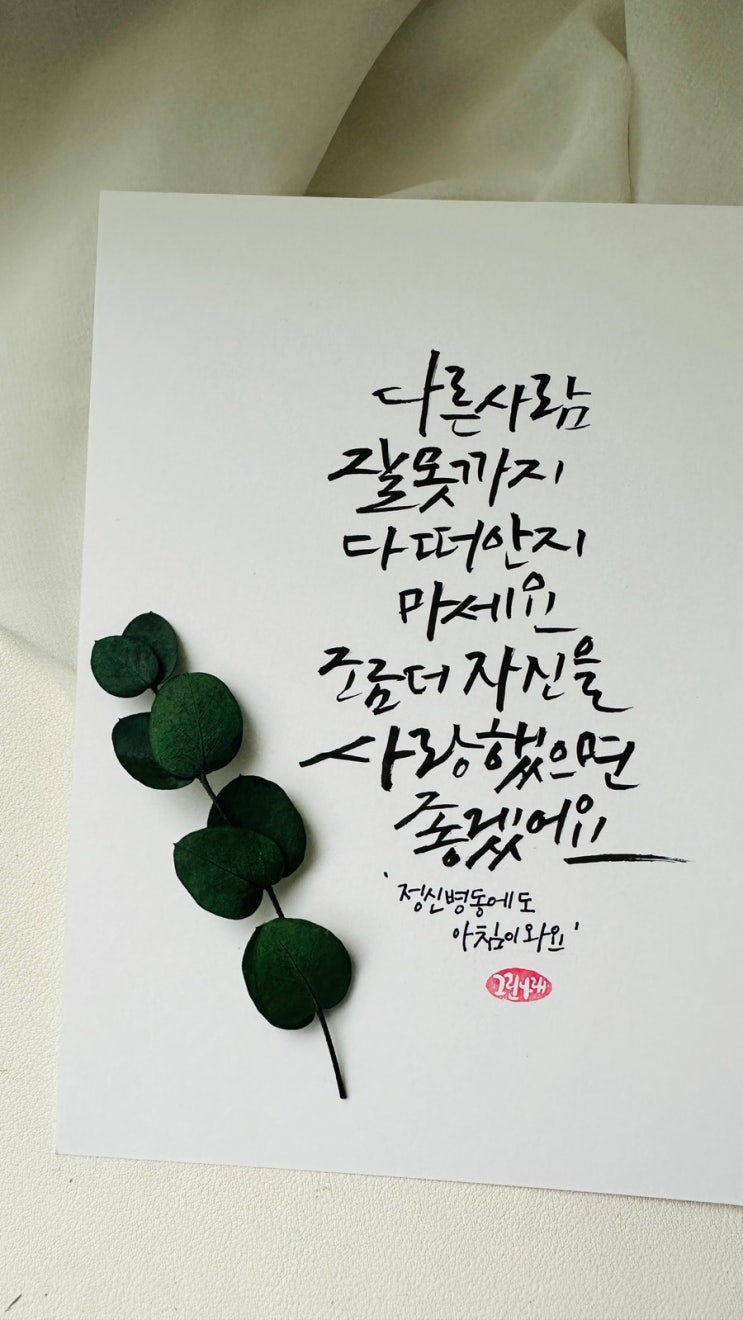 다른사람
잘못까지
다 떠안지
마세요
조금 더 자신을
사랑했으면
좋겠어요
'정신병동에도
아침이 와요'